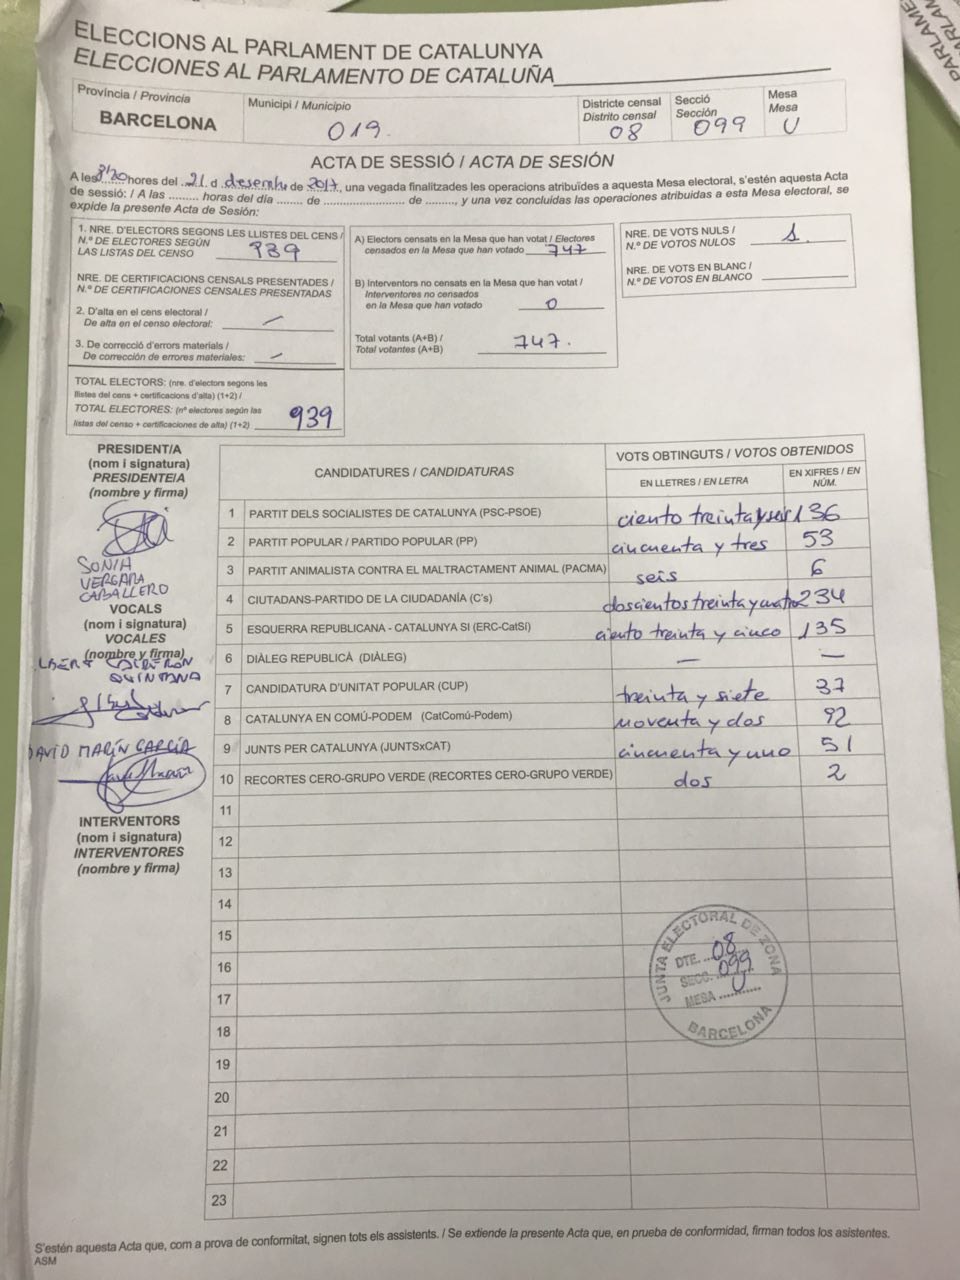 ELECCIONS AL PARLAMENT DE CATALUNYA
ELECCIONES AL PARLAMENTO DE CATALUÑA
Provincia / Provincia
BARCELONA
Municipi / Municipio
019
Districte censal
Distrito censal
08
Secció
Sección
099
Mesa
Mesa
U
ACTA DE SESSIÓ / ACTA DE SESIÓN
A les 8'20 hores del 21 d desembre de 2017, una vegada finalitzades les operacions atribuïdes a aquesta Mesa electoral, s'estén aquesta Acta
de sessió: / A las ......... horas del día ........ de ......................... de ........, y una vez concluidas las operaciones atribuidas a esta Mesa electoral, se
expide la presente Acta de Sesión:
1. NRE. D'ELECTORS SEGONS LES LLISTES DEL CENS /
N.º DE ELECTORES SEGÚN
LAS LISTAS DEL CENSO 939
NRE. DE CERTIFICACIONS CENSALS PRESENTADES /
N.º DE CERTIFICACIONES CENSALES PRESENTADAS
2. D'alta en el cens electoral /
De alta en el censo electoral: —
3. De correcció d'errors materials /
De corrección de errores materiales: —
TOTAL ELECTORS: (nre. d'electors segons les
llistes del cens + certificacions d'alta) (1+2) /
TOTAL ELECTORES: (nº electores según las
listas del censo + certificaciones de alta) (1+2) 939
A) Electors censats en la Mesa que han votat / Electores
censados en la Mesa que han votado 747
B) Interventors no censats en la Mesa que han votat /
Interventores no censados
en la Mesa que han votado 0
Total votants (A+B) /
Total votantes (A+B) 747.
NRE. DE VOTS NULS /
N.º DE VOTOS NULOS 1
NRE. DE VOTS EN BLANC /
N.º DE VOTOS EN BLANCO
PRESIDENT/A
(nom i signatura)
PRESIDENTE/A
(nombre y firma)
SONIA
VERGARA
CABALLERO
VOCALS
(nom i signatura)
VOCALES
(nombre y firma)
QUINTANA
DAVID MARÍN GARCÍA
INTERVENTORS
(nom i signatura)
INTERVENTORES
(nombre y firma)
CANDIDATURES / CANDIDATURAS
VOTS OBTINGUTS / VOTOS OBTENIDOS
EN LLETRES / EN LETRA
EN XIFRES / EN NÚM.
1 PARTIT DELS SOCIALISTES DE CATALUNYA (PSC-PSOE) ciento treinta y seis 136
2 PARTIT POPULAR / PARTIDO POPULAR (PP) cincuenta y tres 53
3 PARTIT ANIMALISTA CONTRA EL MALTRACTAMENT ANIMAL (PACMA) seis 6
4 CIUTADANS-PARTIDO DE LA CIUDADANÍA (C's) doscientos treinta y cuatro 234
5 ESQUERRA REPUBLICANA - CATALUNYA SI (ERC-CatSí) ciento treinta y cinco 135
6 DIÀLEG REPUBLICÀ (DIÀLEG) — —
7 CANDIDATURA D'UNITAT POPULAR (CUP) treinta y siete 37
8 CATALUNYA EN COMÚ-PODEM (CatComú-Podem) noventa y dos 92
9 JUNTS PER CATALUNYA (JUNTSxCAT) cincuenta y uno 51
10 RECORTES CERO-GRUPO VERDE (RECORTES CERO-GRUPO VERDE) dos 2
11
12
13
14
15
16
17
18
19
20
21
22
23
JUNTA ELECTORAL DE ZONA
DTE. 08
SECC. 099
MESA U
BARCELONA
S'estén aquesta Acta que, com a prova de conformitat, signen tots els assistents. / Se extiende la presente Acta que, en prueba de conformidad, firman todos los asistentes.
ASM